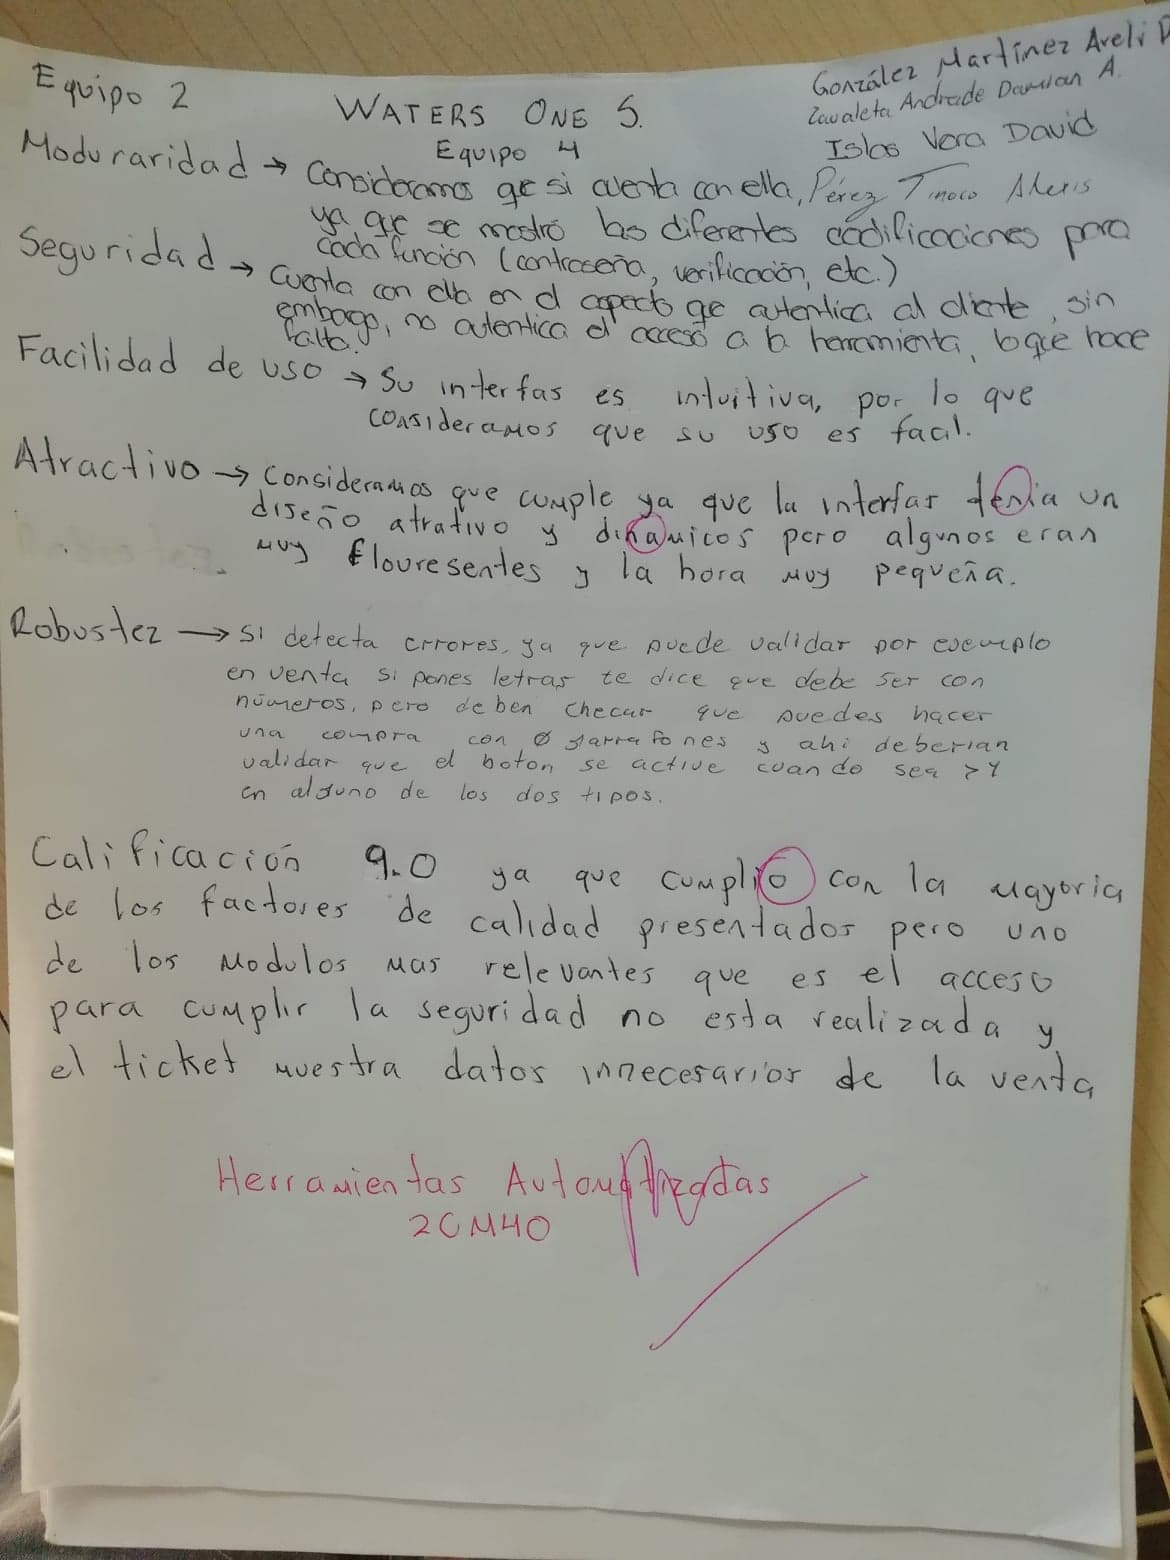 Equipo 2
González Martínez Areli D
Zavaleta Andrade Damian A.
WATERS ONE S.
Islas Vera David
Equipo 4
Pérez Tinoco Alexis
Moduraridad → Consideramos qe si cuenta con ella,
ya que se mostró las diferentes codificaciones para
cada función (contraseña, verificación, etc.)
Seguridad → Cuenta con ella en el aspecto qe autentica al cliente, sin
embargo, no autentica el acceso a la herramienta, lo que hace
falta.
Facilidad de uso → Su interfas es intuitiva, por lo que
consideramos que su uso es facil.
Atractivo → consideramos que cumple ya que la interfas tenia un
diseño atrativo y dinamicos pero algunos eran
muy flouresentes y la hora muy pequeña.
Robustez → si detecta errores, ya que puede validar por ejemplo
en venta si pones letras te dice que debe ser con
números, pero deben checar que puedes hacer
una compra con 0 garrafones y ahi deberian
validar que el boton se active cuando sea >1
en alguno de los dos tipos.
Calificación 9.0 ya que cumplió con la mayoria
de los factores de calidad presentados pero uno
de los modulos mas relevantes que es el acceso
para cumplir la seguridad no esta realizada y
el ticket muestra datos innecesarios de la venta
Herramientas Automatizadas
2CM40